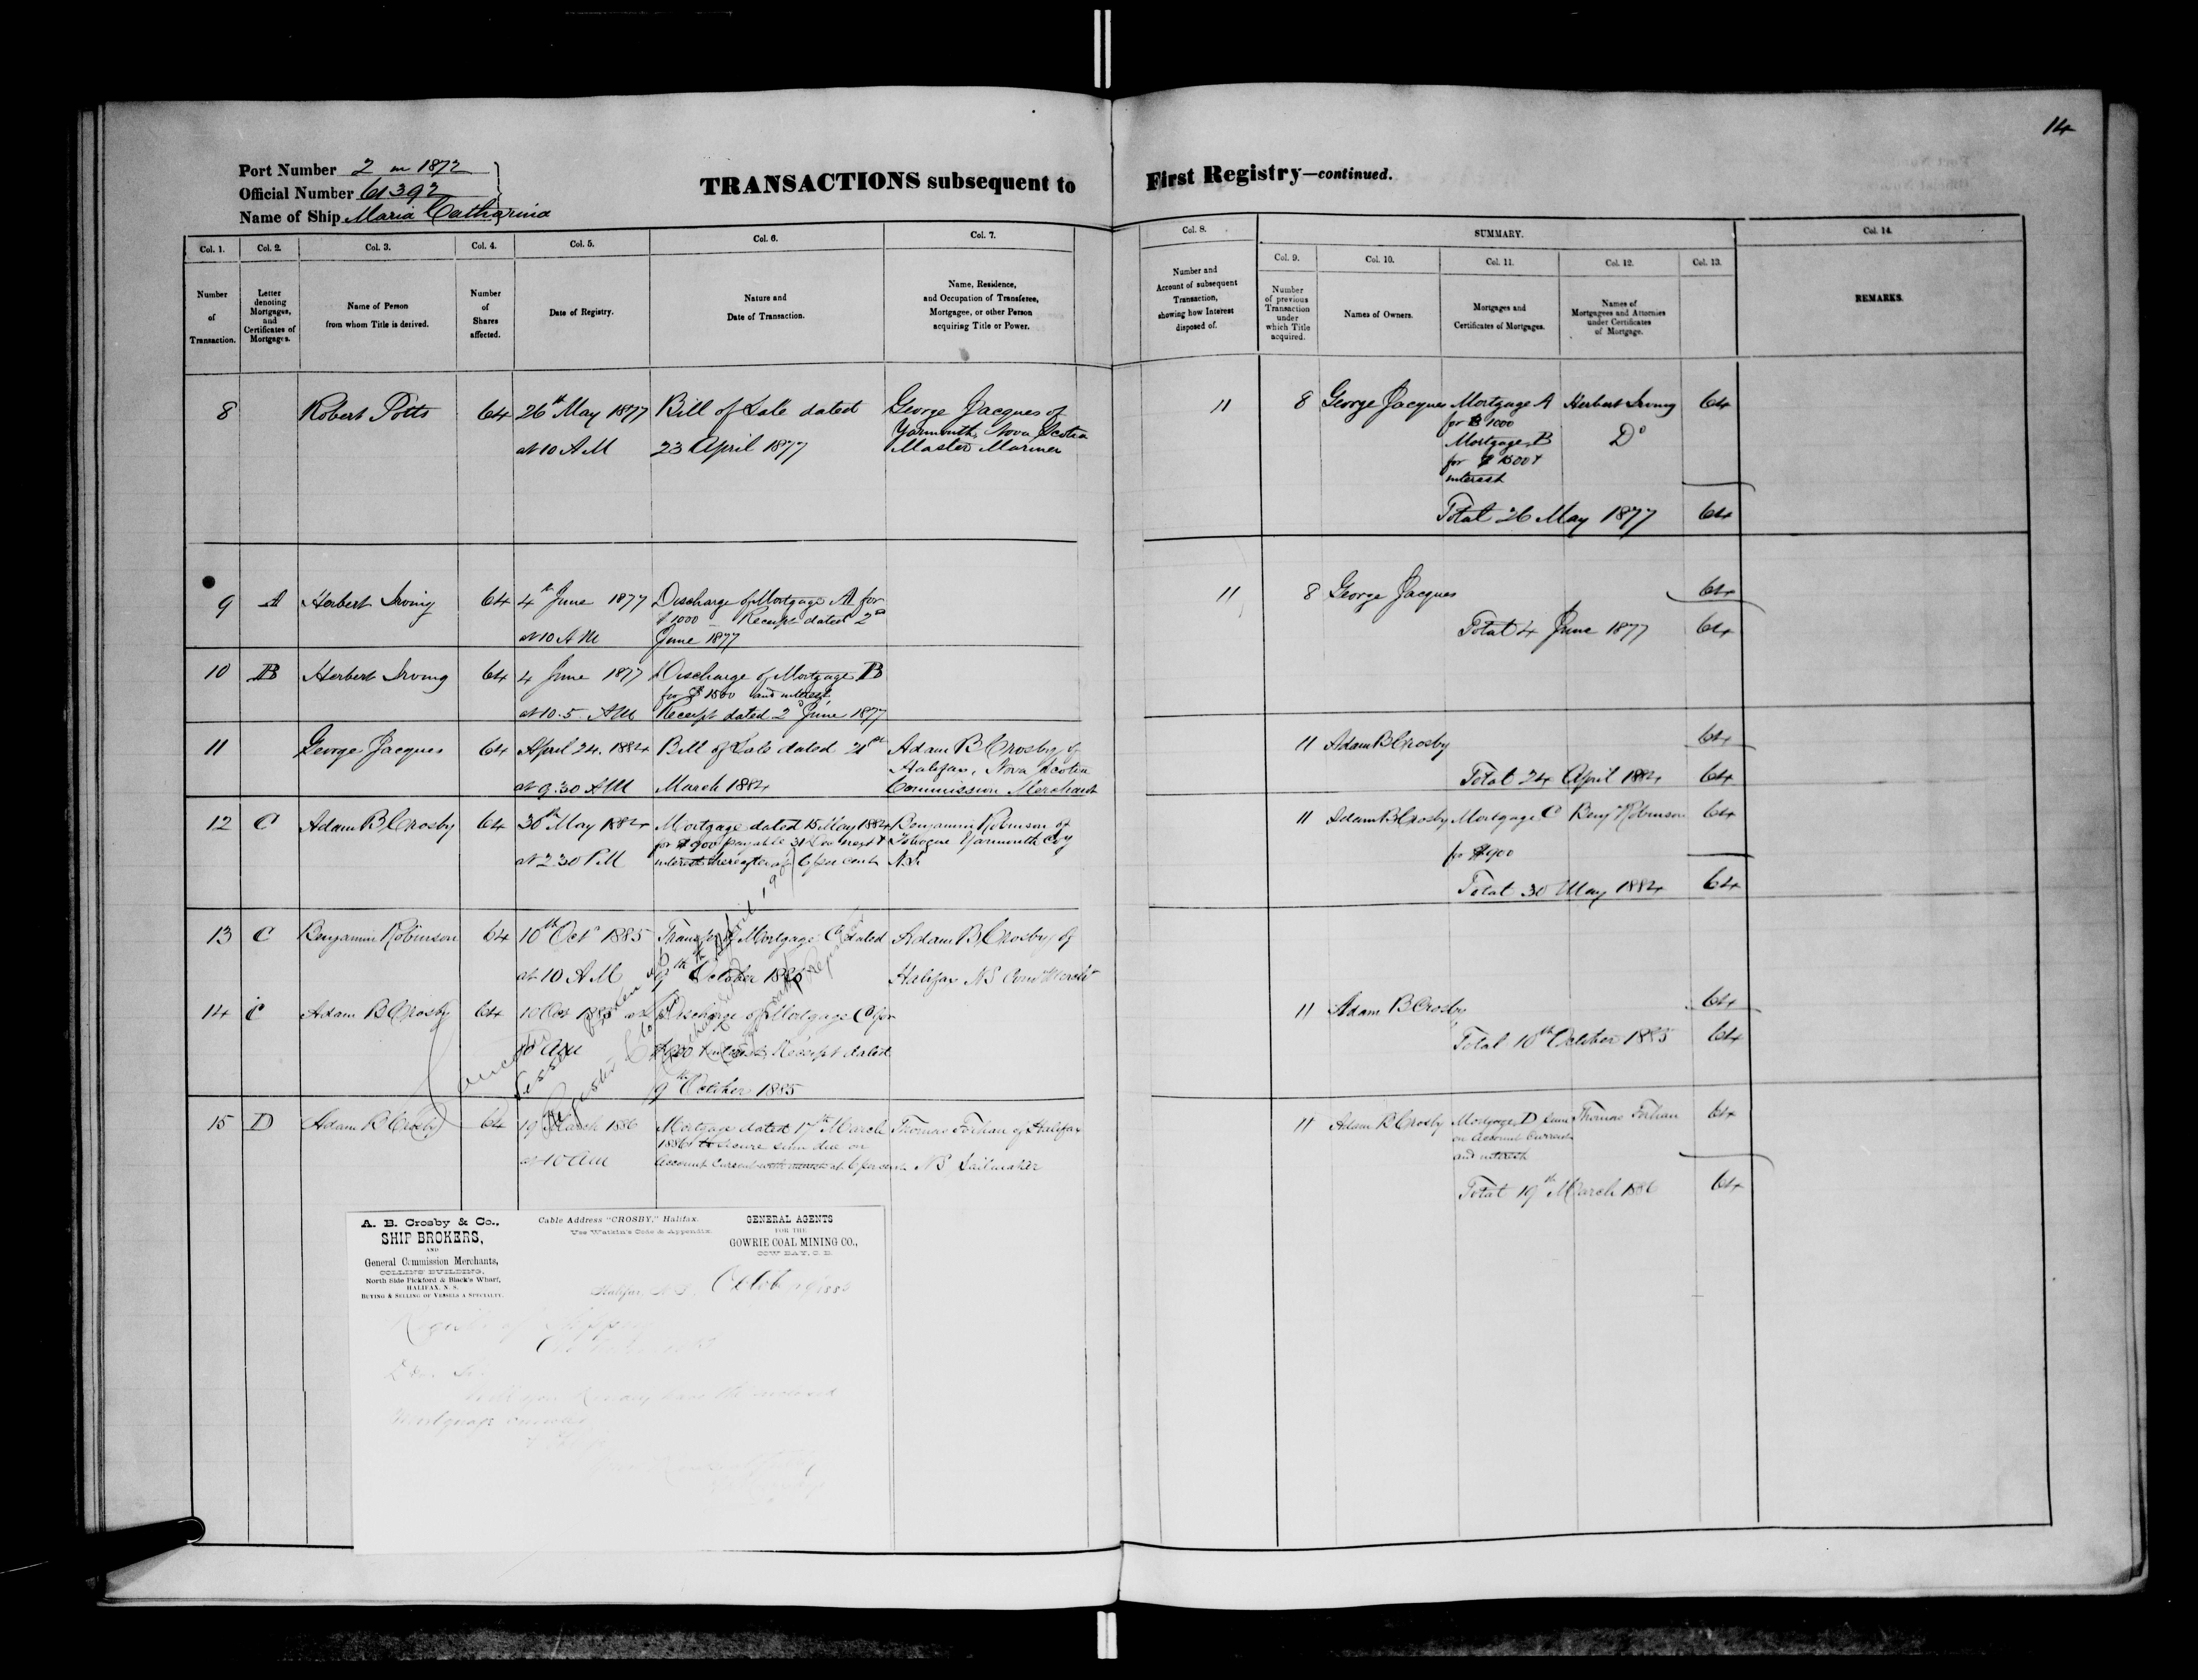 14
Port Number 2 in 1872
Official Number 61392
Name of Ship Maria Catharina
TRANSACTIONS subsequent to First Registry—continued.
Col. 1.
Number of Transaction.
Col. 2.
Letter denoting Mortgages, and Certificates of Mortgages.
Col. 3.
Name of Person from whom Title is derived.
Col. 4.
Number of Shares affected.
Col. 5.
Date of Registry.
Col. 6.
Nature and Date of Transaction.
Col. 7.
Name, Residence, and Occupation of Transferee, Mortgagee, or other Person acquiring Title or Power.
Col. 8.
Number and Account of subsequent Transaction, showing how Interest disposed of.
SUMMARY.
Col. 9.
Number of previous Transaction under which Title acquired.
Col. 10.
Names of Owners.
Col. 11.
Mortgages and Certificates of Mortgages.
Col. 12.
Names of Mortgagees and Attornies under Certificates of Mortgage.
Col. 13.
Col. 14.
REMARKS.
8 Robert Potts 64 26th May 1877 Bill of Sale dated George Jacques of
Yarmouth, Nova Scotia
at 10 AM 23 April 1877 Master Mariner
11 8 George Jacques Mortgage A Herbert Irving 64
for $ 1000
Mortgage B Do
for $ 1500 +
interest
Total 26 May 1877 64
9 A Herbert Irving 64 4th June 1877 Discharge of Mortgage A for
$ 1000 Receipt dated 2d
at 10 AM June 1877
11 8 George Jacques 64
Total 4 June 1877 64
10 B Herbert Irving 64 4 June 1877 Discharge of Mortgage B
for $ 1500 and interest
at 10.5. AM Receipt dated 2d June 1877
11 George Jacques 64 April 24. 1884 Bill of Sale dated 21st Adam B Crosby of
Halifax, Nova Scotia
at 9.30 AM March 1884 Commission Merchant
11 Adam B Crosby 64
Total 24 April 1884 64
12 C Adam B Crosby 64 30th May 1884 Mortgage dated 15 May 1884 Benjamin Robinson of
for $900 payable 31 Dec next + Yarmouth Co
at 2.30 PM interest thereafter at 6 per cent N.S.
11 Adam B Crosby Mortgage C Benj Robinson 64
for $900
Total 30 May 1884 64
13 C Benjamin Robinson 64 10th Oct 1885 Transfer of Mortgage C dated Adam B Crosby of
at 10 AM 9th October 1885 Halifax NS Com Merch
14 C Adam B Crosby 64 10 Oct 1885 at Discharge of Mortgage C for
10 AM $900 + interest Receipt dated
9th October 1885
11 Adam B Crosby 64
Total 10th October 1885 64
15 D Adam B Crosby 64 19 March 1886 Mortgage dated 17th March Thomas Forhan of Halifax
1886 to secure sum due on
at 10 AM Account Current with interest at 6 per cent NS Sailmaker
11 Adam B Crosby Mortgage D sum Thomas Forhan 64
on Account Current
and interest
Total 19th March 1886 64
Register Closed
A. B. Crosby & Co.,
SHIP BROKERS,
AND
General Commission Merchants,
COLLINS' BUILDING,
North Side Pickford & Black's Wharf,
HALIFAX, N. S.
BUYING & SELLING OF VESSELS A SPECIALTY.
Cable Address "CROSBY," Halifax.
Use Watkin's Code & Appendix.
GENERAL AGENTS
FOR THE
GOWRIE COAL MINING CO.,
COW BAY, C. B.
Halifax, N. S.,
Dear Sir
Will you have the enclosed